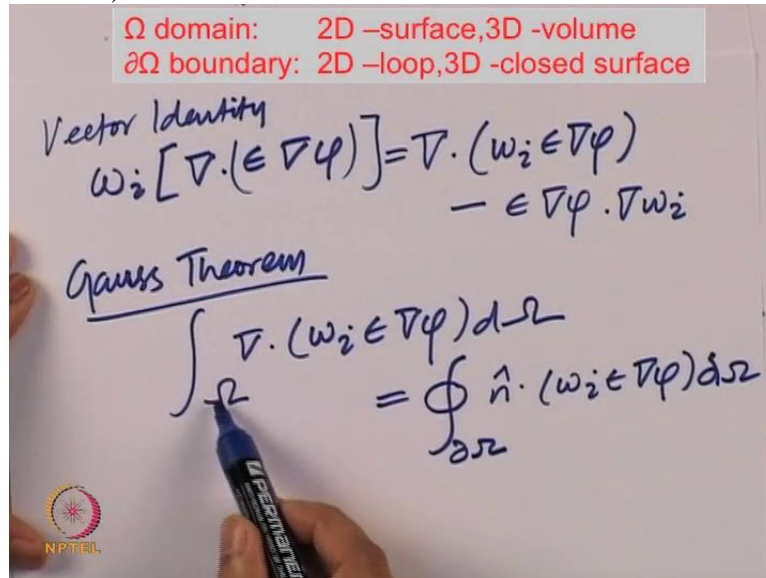 Ω domain: 2D –surface,3D -volume
∂Ω boundary: 2D –loop,3D -closed surface
Vector Identity
ω_i [∇.(∈ ∇φ)] = ∇. (w_i ∈ ∇φ)
− ∈ ∇φ . ∇w_i
Gauss Theorem
∫_Ω ∇. (w_i ∈ ∇φ) dΩ
= ∮_∂Ω n̂. (w_i ∈ ∇φ) dΩ
PERMANE
NPTEL